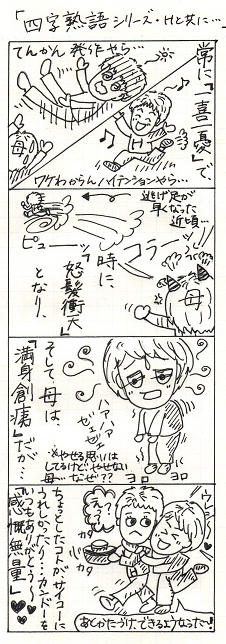 「四字熟語シリーズ・Hと共に…」
常に「喜憂」で
てんかん発作やら…
母
H
ワケわからんハイテンションやら…
逃げ足が
早くなった
近頃…
コラーッ!
ピューーッ
時に、
「怒髪衝天」
となり、
母
そして、母は、
「満身創痍」だが…
ハアハア
ゼェゼェ
※やせる思いは
してるけど、やせない
母…なぜ??
ヨロ
ヨロ
ちょっとしたコトがサイコーに
「感慨無量」
え?
カタ
カタ
あとかたづけ、できるようなった〜!